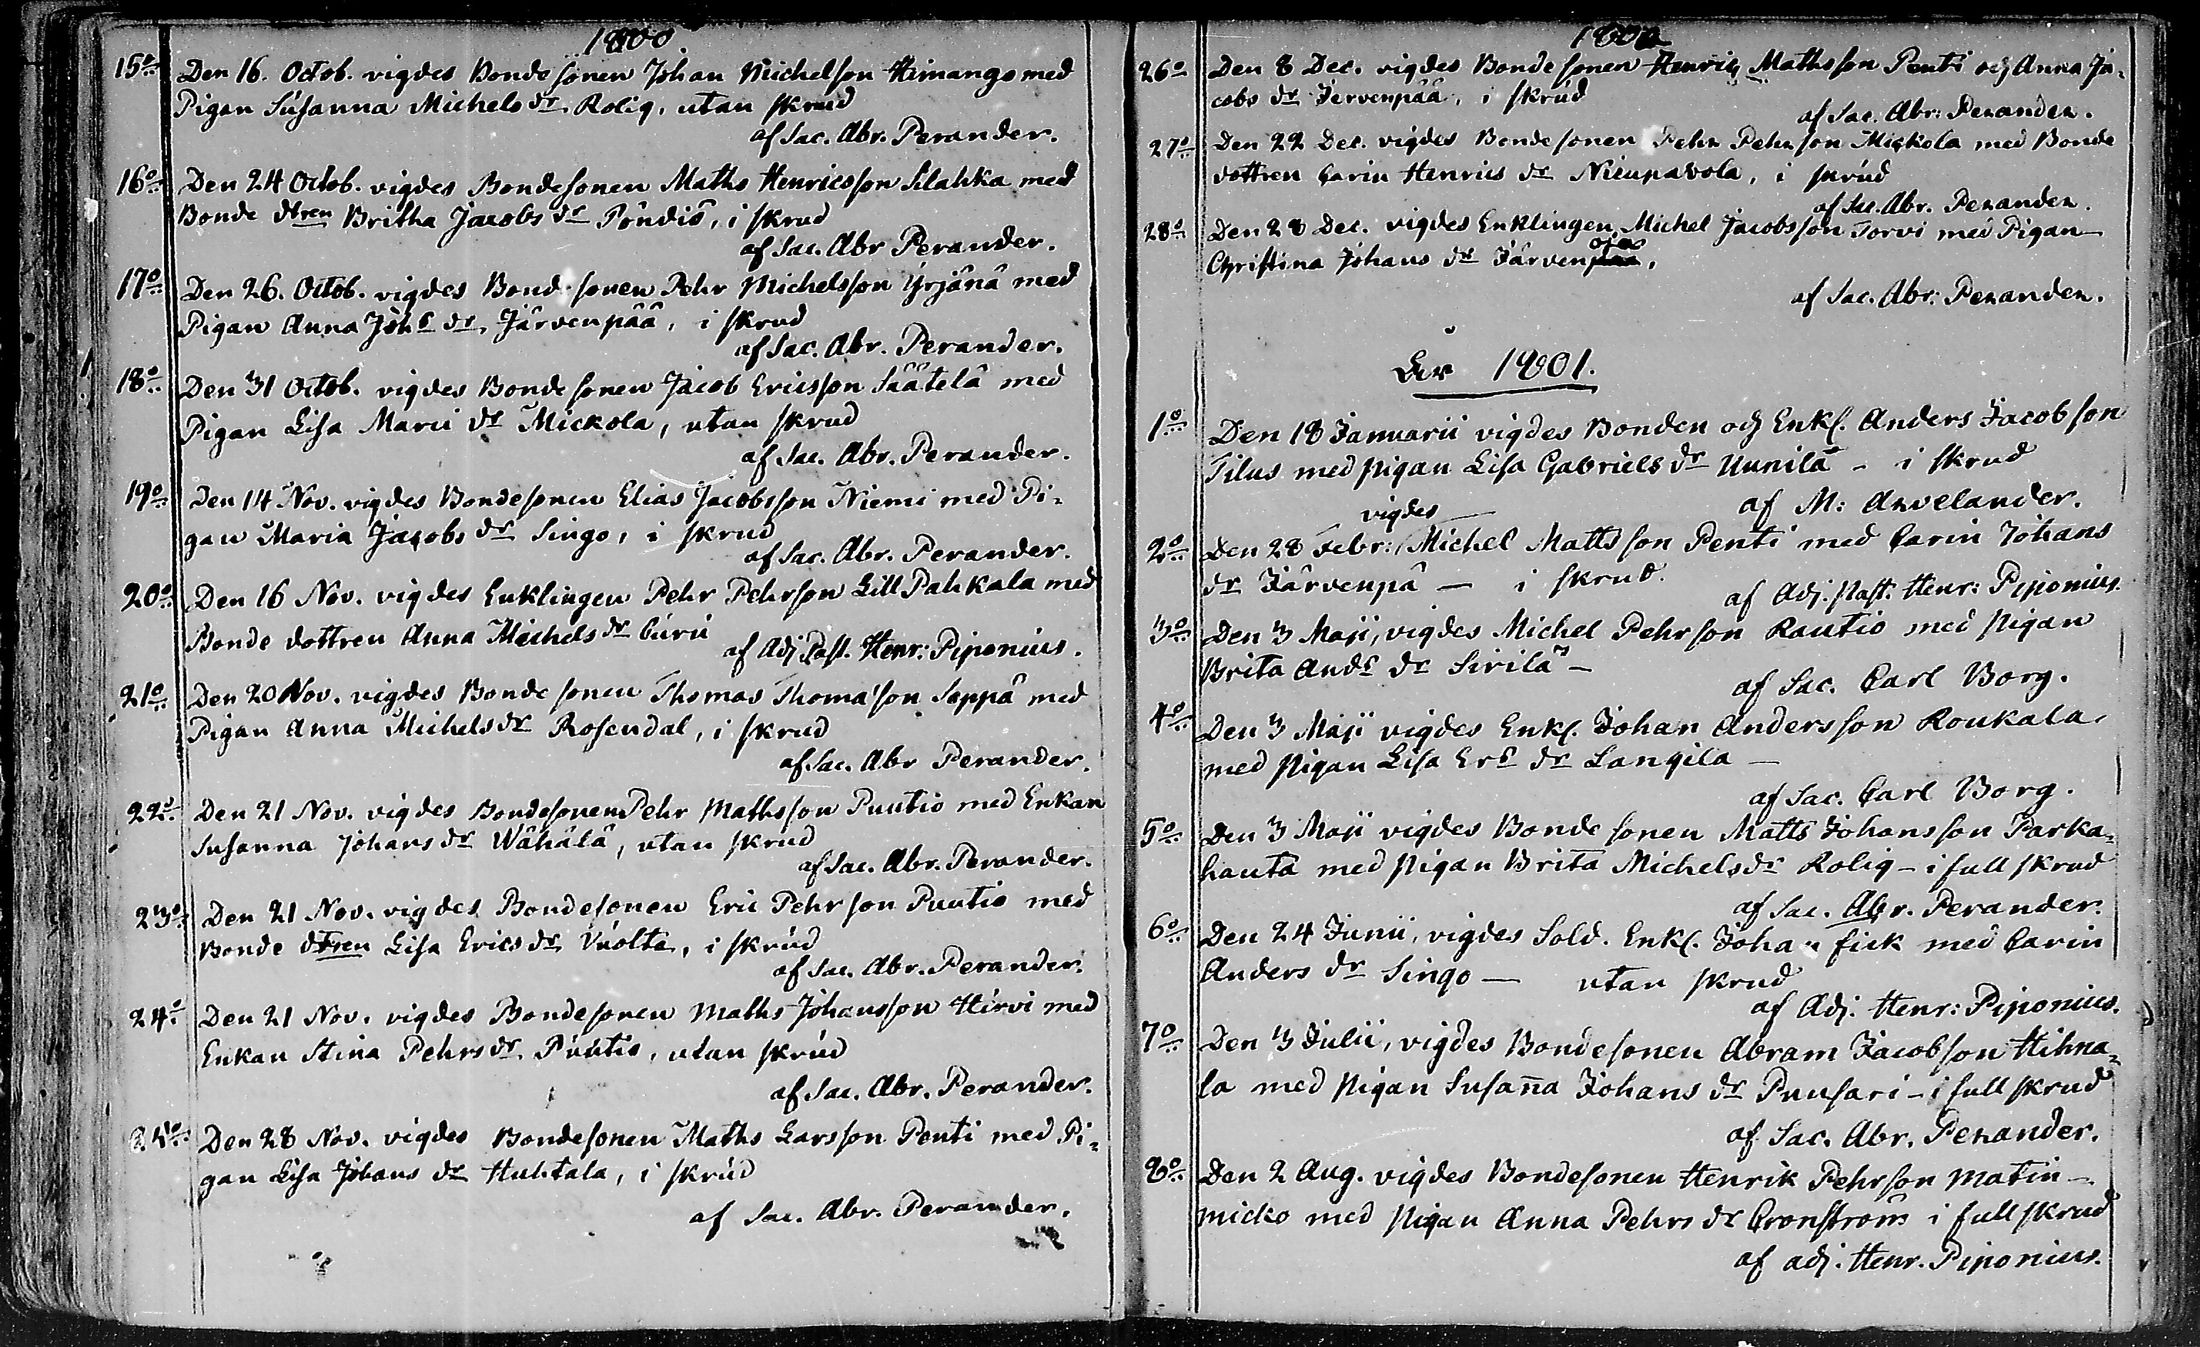 1800
15:o Den 16. Octob. vigdes Bondesonen Johan Michelson Himango med
Pigan Susanna Michels dr. Rolig, utan skrud
af Sac. Abr. Perander.
16:o Den 24 Octob. vigdes Bondesonen Maths Henricsson Silahka med
Bonde dtren Britha Jacobs dr Pöndiö, i skrud
af Sac. Abr Perander.
17:o Den 26. Octob. vigdes Bondesonen Pehr Michelsson Yrjänä med
Pigan Anna Johs dr. Järvenpää, i skrud
af Sac. Abr. Perander.
18:o Den 31 Octob. vigdes Bondesonen Jacob Ericsson Säätelä med
Pigan Lisa Marii dr Mickola, utan skrud
af Sac. Abr. Perander.
19:o Den 14 Nov. vigdes Bondesonen Elias Jacobsson Niemi med Pi-
gan Maria Jacobs dr Singo, i skrud
af Sac. Abr. Perander.
20:o Den 16 Nov. vigdes Enklingen Pehr Pehrson Lill Pahkala med
Bonde dottren Anna Michels dr Curu
af Adj. Past. Henr: Piponius.
21:o Den 20 Nov. vigdes Bonde sonen Thomas Thomasson Sappä med
Pigan Anna Michels dr Rosendal, i skrud
af Sac. Abr Perander.
22:o Den 21 Nov. vigdes Bondesonen Pehr Mathsson Puutio med Enkan
Susanna Johans dr Wähälä, utan skrud
af Sac. Abr. Perander.
23:o Den 21 Nov. vigdes Bondesonen Eric Pehrson Puutio med
Bonde dtren Lisa Erics dr Vuolte, i skrud
af Sac. Abr. Perander.
24:o Den 21 Nov. vigdes Bondesonen Maths Johansson Hirvi med
Enkan Stina Pehrs dr. Puutio, utan skrud
af Sac. Abr. Perander.
25:o Den 28 Nov. vigdes Bondesonen Maths Larsson Penti med Pi-
gan Lisa Johans dr Huhtala, i skrud
af Sac. Abr. Perander.
1800
26:o Den 8 Dec. vigdes Bondesonen Henric Mathsson Penti och Anna Ja-
cobs dr Jervenpää, i skrud
af Sac. Abr: Perander.
27:o Den 22 Dec. vigdes Bondesonen Pehr Pehrson Mickola med Bonde
dottren Carin Henrics dr Nicupavola, i skrud
af Sac. Abr. Perander.
28:o Den 28 Dec. vigdes Enklingen Michel Jacobsson Torvi med Pigan
Christina Johans dr Järvenoja,
af Sac. Abr: Perander.
År 1801.
1:o Den 18 Januarii vigdes Bonden och Enkl. Anders Jacobson
Tilus med pigan Lisa Gabriels dr Uunilä - i skrud
af M: Arvelander.
vigdes
2:o Den 28 Febr: Michel Mattsson Penti med Carin Johans
dr Järvenpä - i skrud.
af Adj. Past. Henr: Piponius.
3:o Den 3 Maji, vigdes Michel Pehrson Rautio med pigan
Brita Ands dr Sirilä -
af Sac. Carl Borg.
4:o Den 3 Maji vigdes Enkl. Johan Andersson Roukala
med pigan Lisa Ers dr Langila -
af Sac. Carl Borg.
5:o Den 3 Maji vigdes Bonde sonen Matts Johansson Parka-
hauta med pigan Brita Michels dr Rolig - i full skrud
af Sac. Abr. Perander.
6:o Den 24 Junii, vigdes Sold. Enkl. Johan fick med Carin
Anders dr Singo - utan skrud
af Adj. Henr: Piponius.
7:o Den 3 Julii, vigdes Bondesonen Abram Jacobson Hihna-
la med pigan Susanna Johans dr Puusari - i full skrud
af Sac. Abr. Perander.
8:o Den 2 Aug. vigdes Bondesonen Henrik Pehrson Matin-
micko med pigan Anna Pehrs dr Cronström i full skrud
af adj. Henr. Piponius.